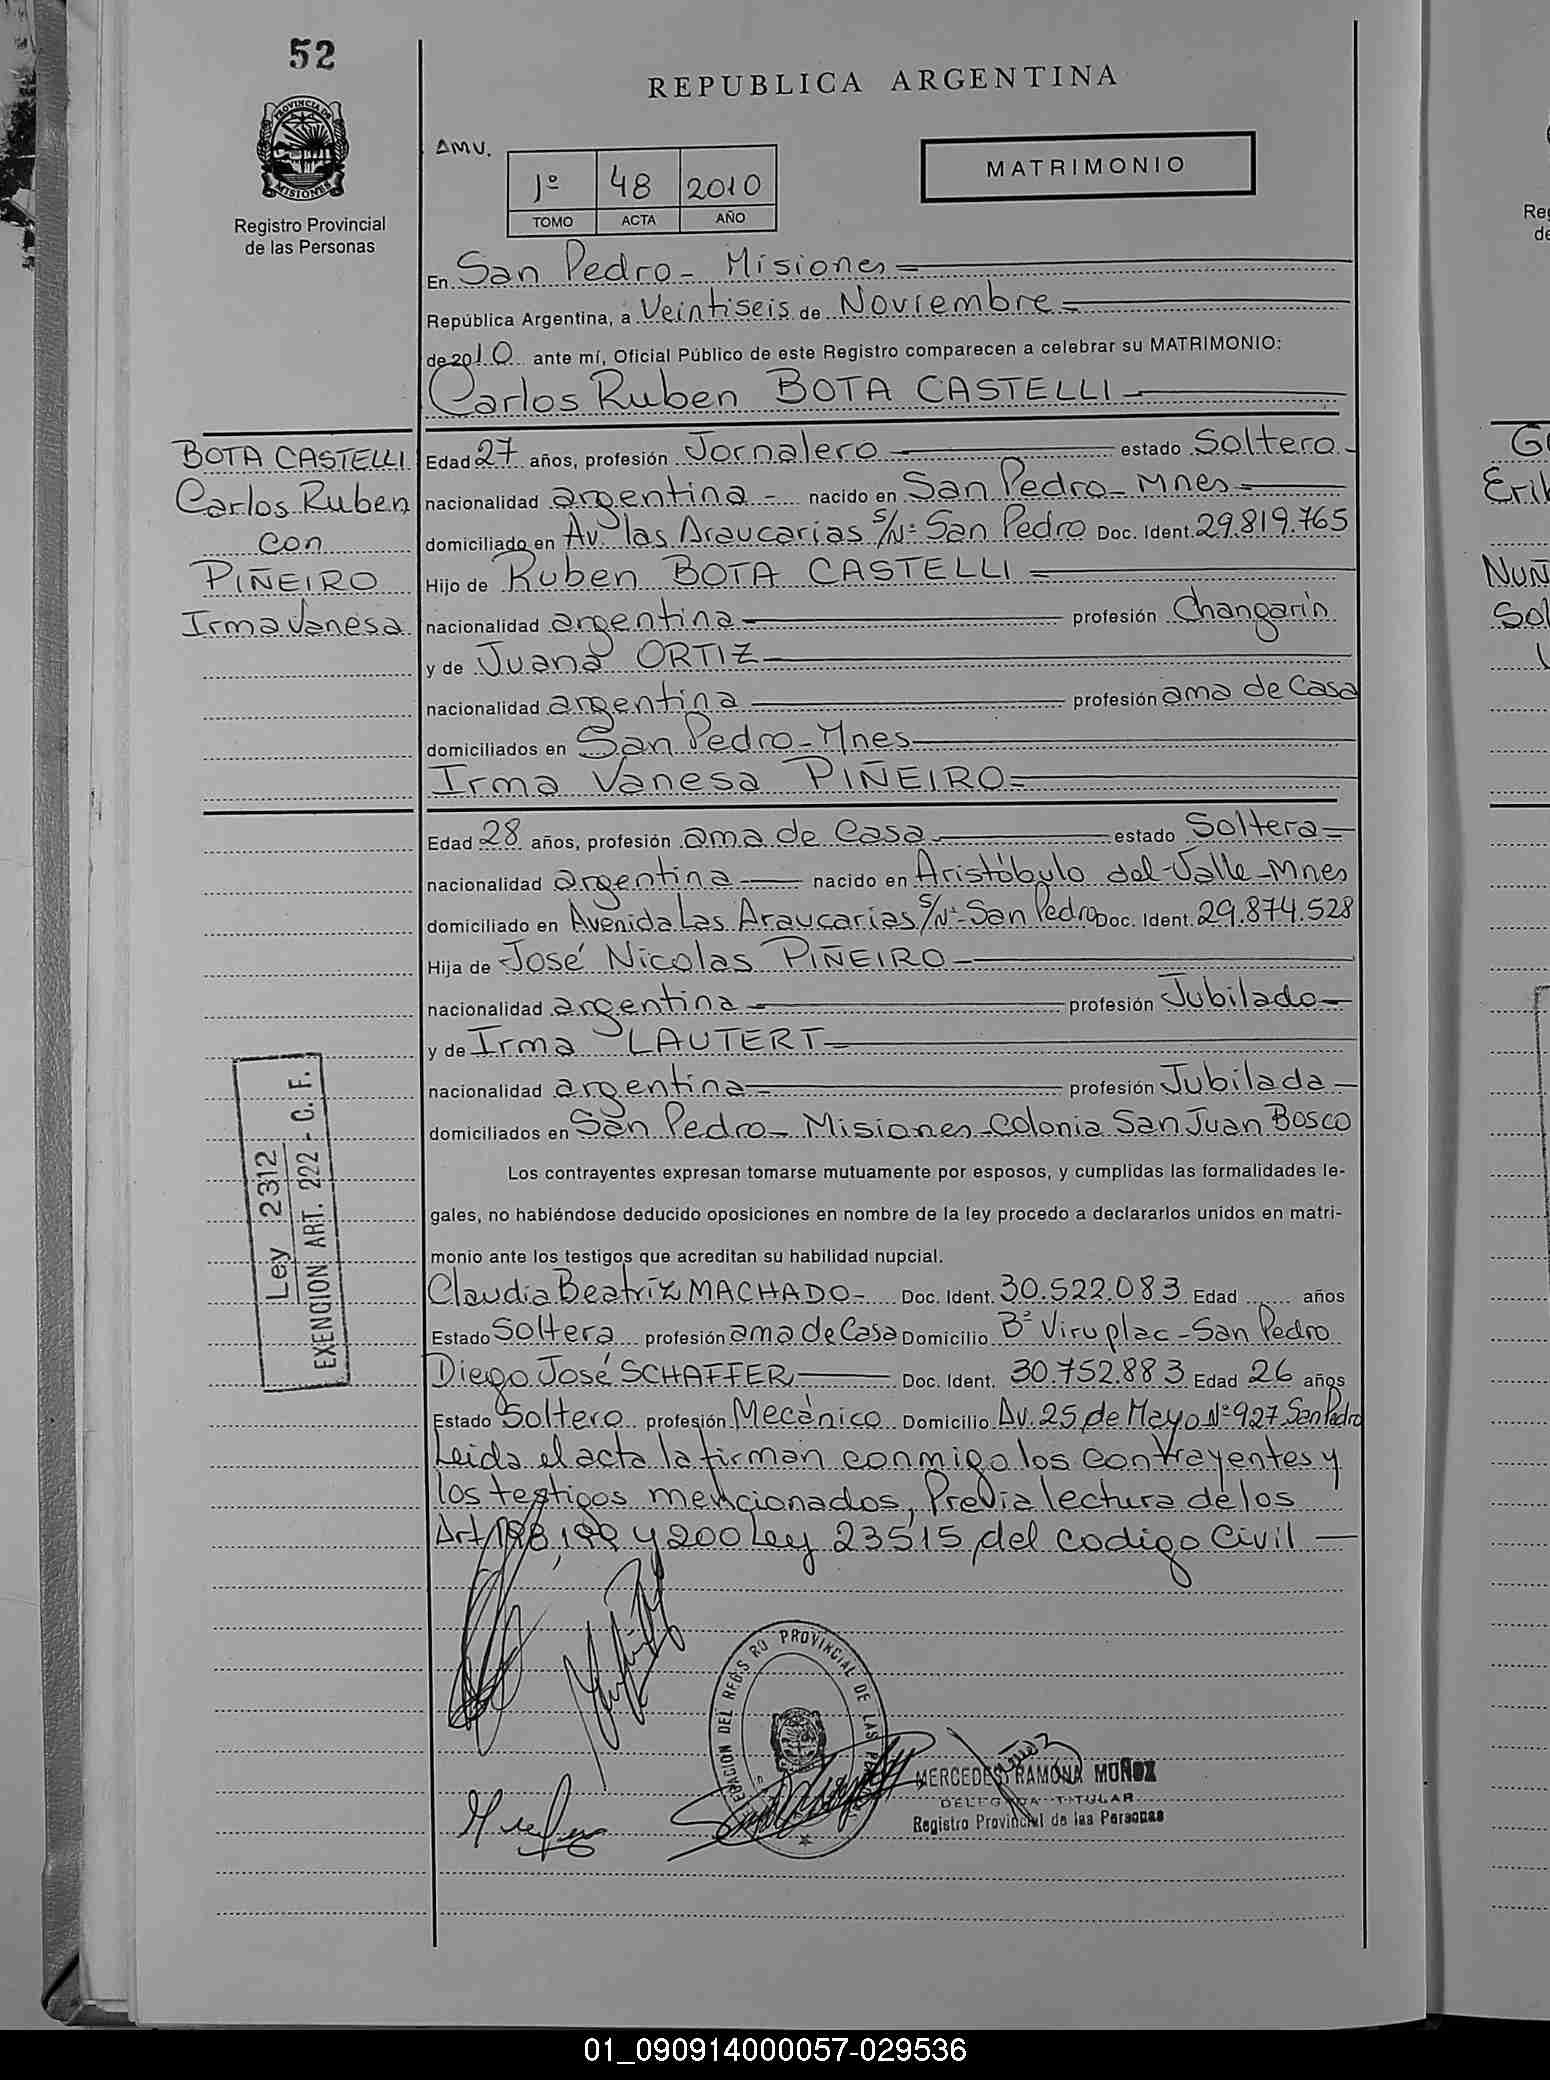 52
REPUBLICA ARGENTINA
PROVINCIA DE MISIONES
Registro Provincial
de las Personas
AMU.
1º 48 2010
TOMO ACTA AÑO
MATRIMONIO
En San Pedro - Misiones
República Argentina, a Veintiseis de Noviembre
de 2010 ante mí, Oficial Público de este Registro comparecen a celebrar su MATRIMONIO:
Carlos Ruben BOTA CASTELLI
BOTA CASTELLI
Carlos Ruben
con
PIÑEIRO
Irma Vanesa
Edad 27 años, profesión Jornalero estado Soltero
nacionalidad argentina - nacido en San Pedro - Mnes
domiciliado en Av. las Araucarias S/Nº San Pedro Doc. Ident. 29.819.765
Hijo de Ruben BOTA CASTELLI
nacionalidad argentina profesión Changarín
y de Juana ORTIZ
nacionalidad argentina profesión ama de Casa
domiciliados en San Pedro - Mnes
Irma Vanesa PIÑEIRO
Edad 28 años, profesión ama de Casa estado Soltera
nacionalidad argentina nacido en Aristóbulo del Valle - Mnes
domiciliado en Avenida Las Araucarias S/Nº - San Pedro Doc. Ident. 29.874.528
Hija de José Nicolas PIÑEIRO
nacionalidad argentina profesión Jubilado
y de Irma LAUTERT
nacionalidad argentina profesión Jubilada
domiciliados en San Pedro - Misiones - Colonia San Juan Bosco
Los contrayentes expresan tomarse mutuamente por esposos, y cumplidas las formalidades le-
gales, no habiéndose deducido oposiciones en nombre de la ley procedo a declararlos unidos en matri-
monio ante los testigos que acreditan su habilidad nupcial.
Ley 2312
EXENCION ART. 222 - C. F.
Claudia Beatríz MACHADO - Doc. Ident. 30.522.083 Edad años
Estado Soltera profesión ama de Casa Domicilio Bº Viruplac - San Pedro
Diego José SCHAFFER Doc. Ident. 30.752.883 Edad 26 años
Estado Soltero profesión Mecánico Domicilio Av. 25 de Mayo Nº 927 San Pedro
Leida el acta la firman conmigo los contrayentes y
los testigos mencionados, Previa lectura de los
Art 198, 199 y 200 Ley 23515 del codigo Civil
DEL REGISTRO PROVINCIAL DE LAS
MERCEDES RAMONA MUÑOZ
DELEGADA TITULAR
Registro Provincial de las Personas
01_090914000057-029536